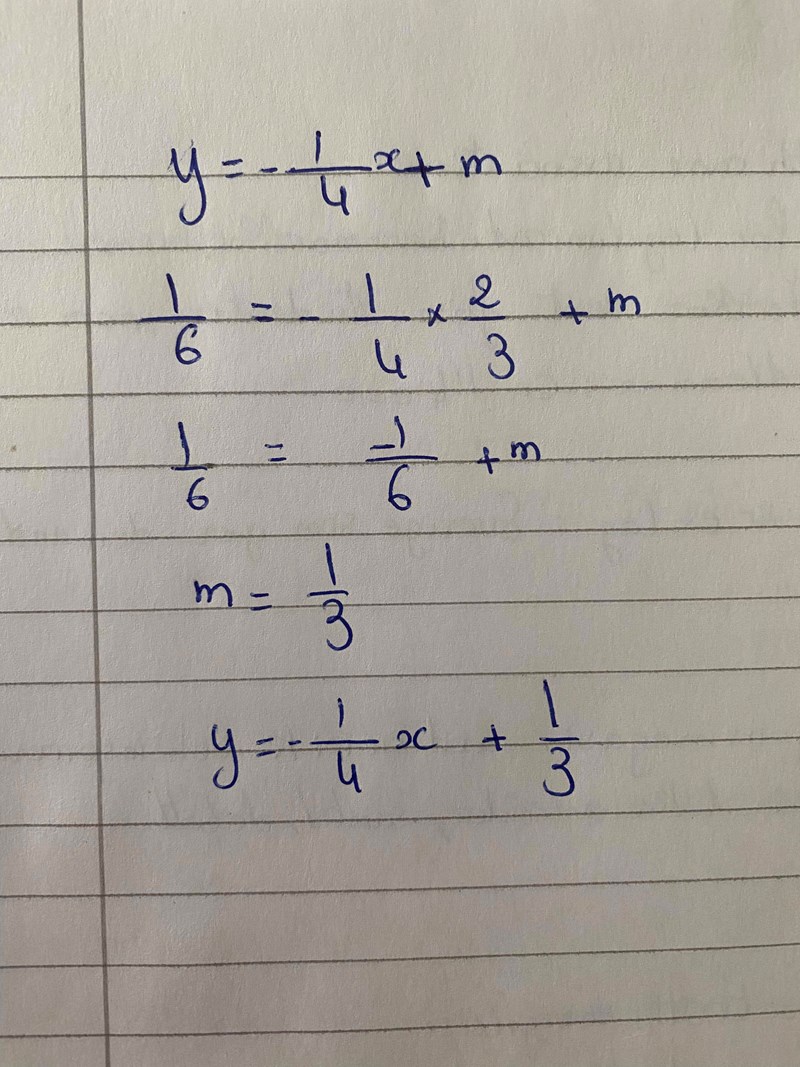 y = - 1/4 x + m
1/6 = - 1/4 × 2/3 + m
1/6 = -1/6 + m
m = 1/3
y = - 1/4 x + 1/3